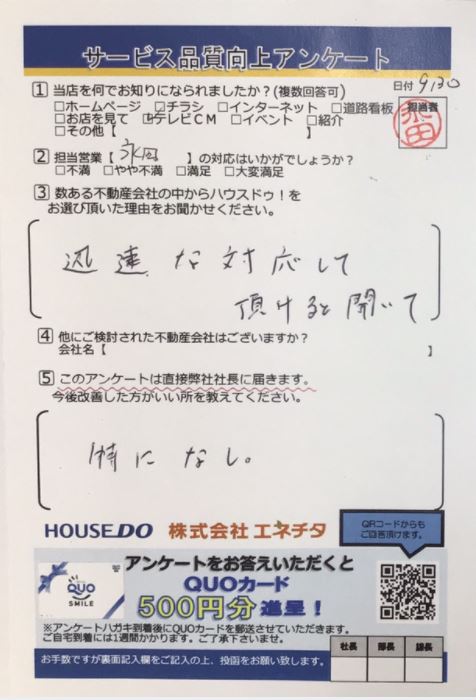 サービス品質向上アンケート
日付 9,30
1 当店を何でお知りになられましたか?(複数回答可)
□ホームページ □チラシ □インターネット □道路看板
□お店を見て □テレビCM □イベント □紹介
□その他【 】
担当者
永田
2 担当営業【 永田 】の対応はいかがでしょうか?
□不満 □やや不満 □満足 □大変満足
3 数ある不動産会社の中からハウスドゥ!を
お選び頂いた理由をお聞かせください。
迅速な対応して
頂けると聞いて
4 他にご検討された不動産会社はございますか?
会社名【 】
5 このアンケートは直接弊社社長に届きます。
今後改善した方がいい所を教えてください。
特になし。
HOUSEDO 株式会社 エネチタ
QRコードからも
ご回答頂けます。
QUO
SMILE
アンケートをお答えいただくと
QUOカード
500円分 進呈!
※アンケートハガキ到着後にQUOカードを郵送させていただきます。
ご自宅到着には1週間かかります。ご了承下さいませ。
お手数ですが裏面記入欄をご記入の上、投函をお願い致します。
社長 部長 課長